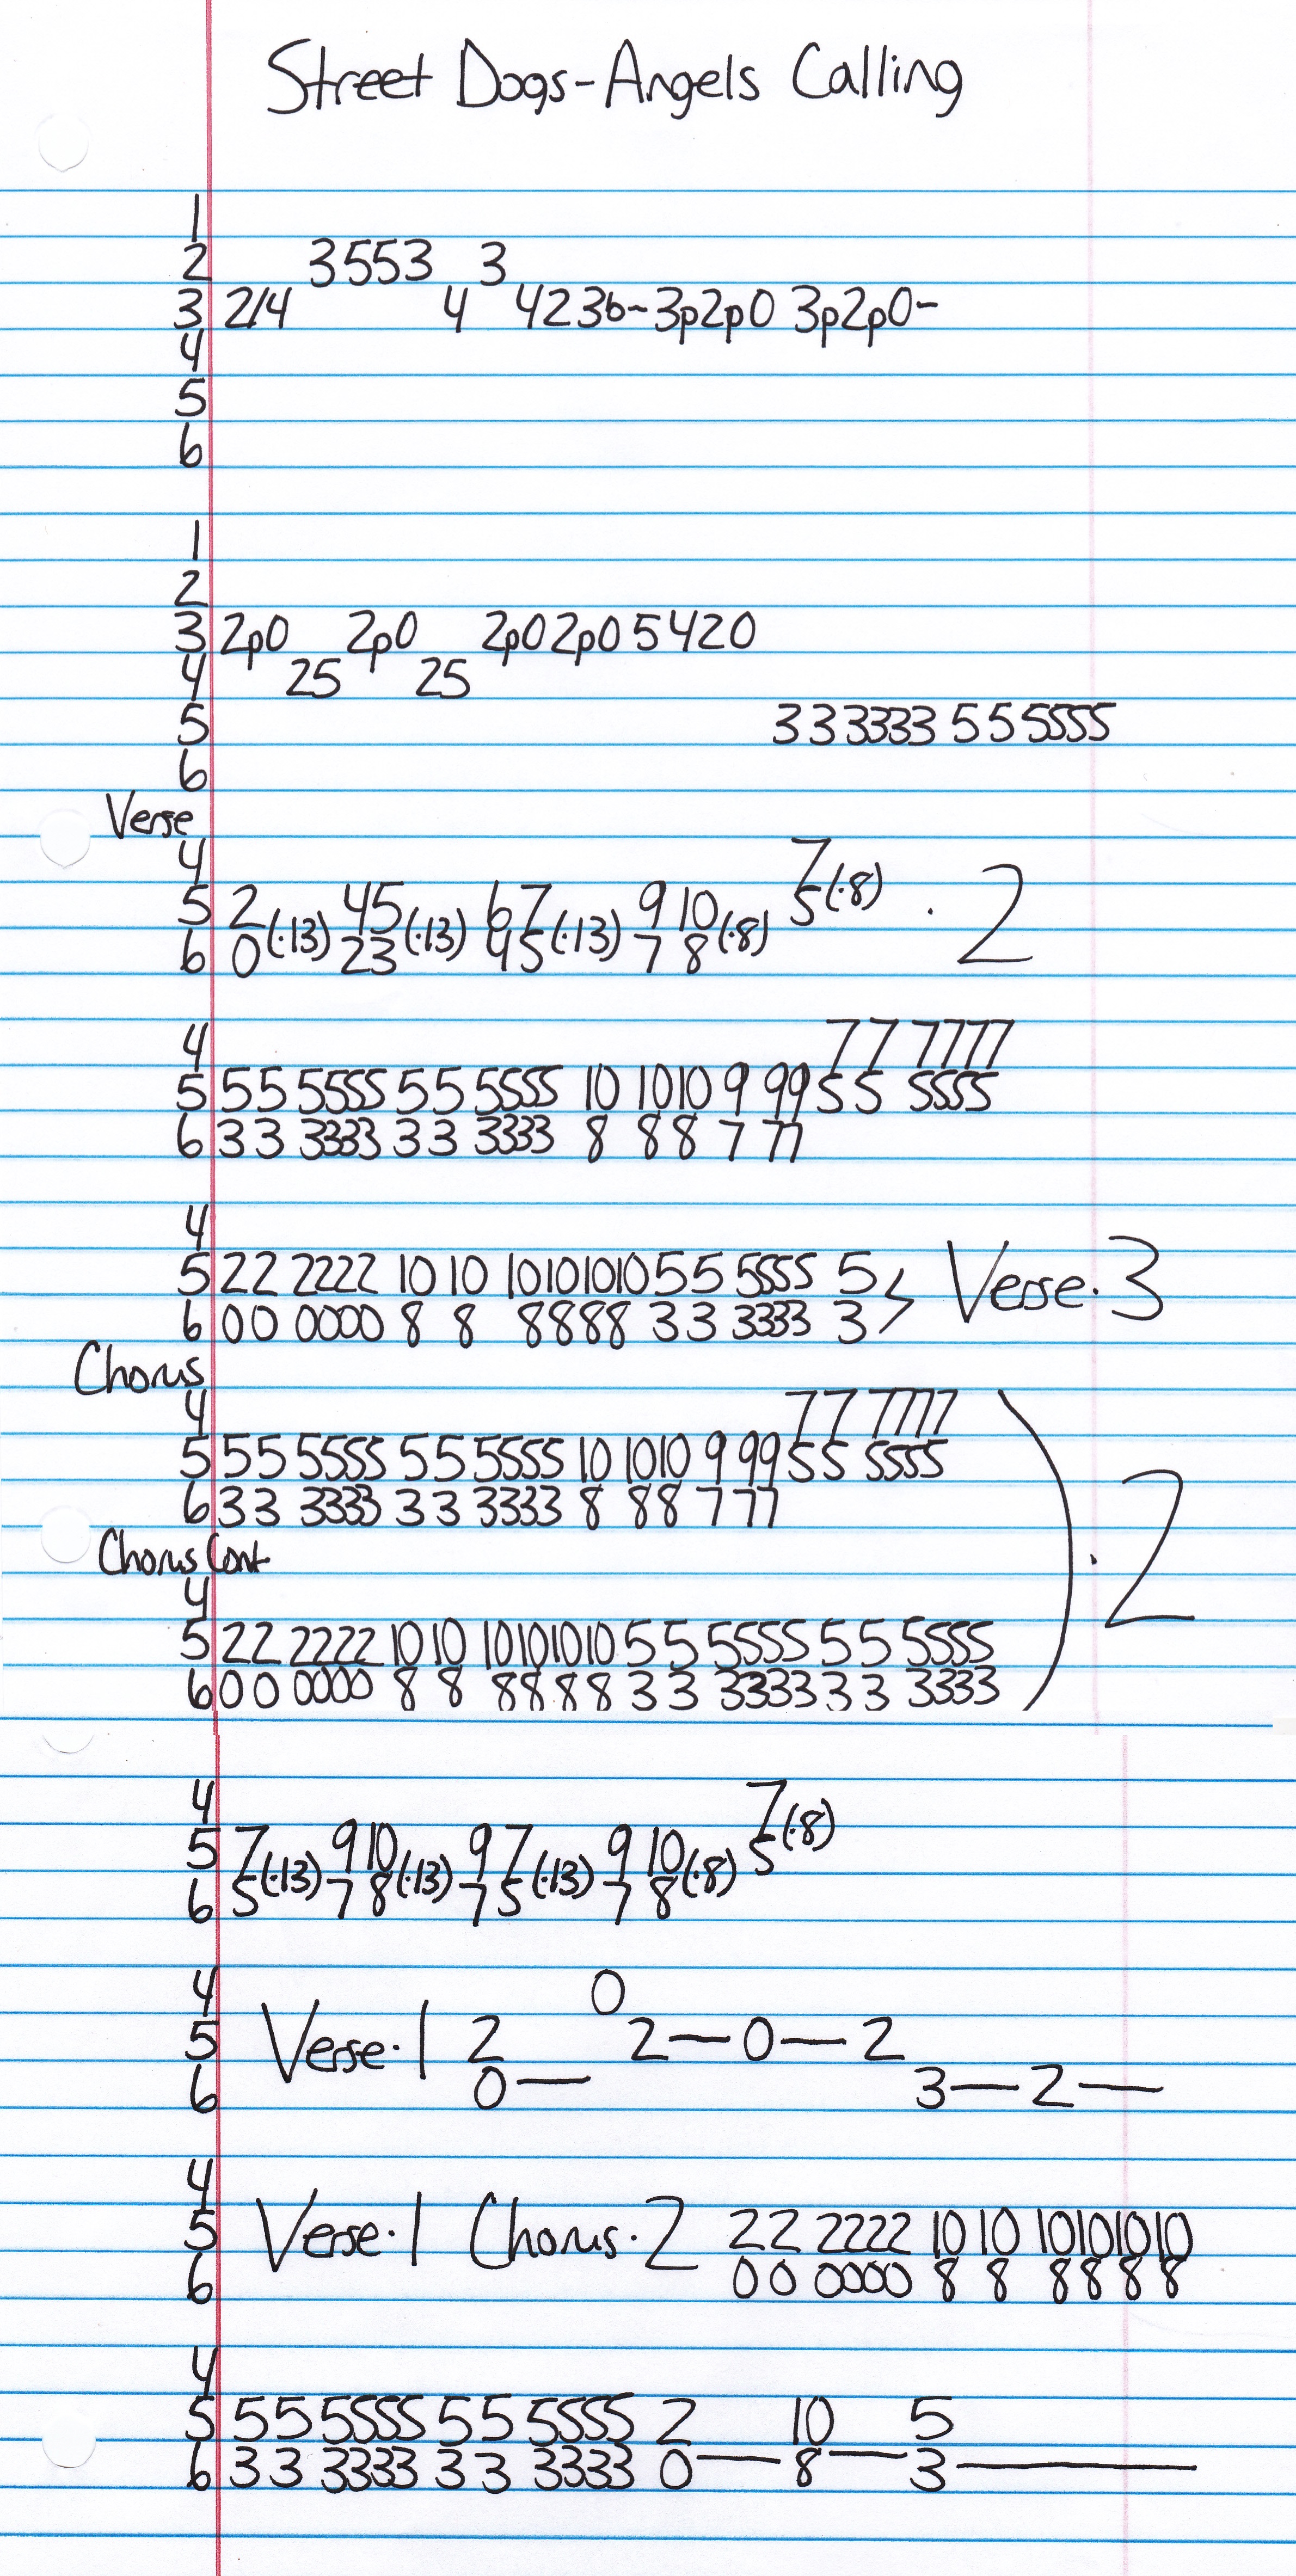 Street Dogs-Angels Calling
1
2 3553 3
3 2/4 4 423b~3p2p0 3p2p0-
4
5
6
1
2
3 2p0 2p0 2p02p05420
4 25 25
5 333333 555555
6
Verse
4 7
5 2 45 67 9 10 5(·8) · 2
6 0(·13) 23(·13) 45(·13) 7 8(·8)
4 77 7777
5 55 5555 55 5555 10 1010 9 99 55 5555
6 33 3333 33 3333 8 88 7 77
4
5 22 2222 10 10 10101010 55 5555 5 Verse·3
6 00 0000 8 8 8888 33 3333 3
Chorus
4 77 7777
5 55 5555 55 5555 10 1010 9 99 55 5555
6 33 3333 33 3333 8 88 7 77
Chorus Cont
·2
4
5 22 2222 10 10 10101010 55 5555 55 5555
6 00 0000 8 8 8888 33 3333 33 3333
4 7
5 7 9 10 9 7 9 10 5(·8)
6 5(·13) 7 8(·13) 7 5(·13) 7 8(·8)
4 0
5 Verse·1 2 2—0—2
6 0— 3—2—
4
5 Verse·1 Chorus·2 22 2222 10 10 10101010
6 00 0000 8 8 8888
4
5 55 5555 55 5555 2 10 5
6 33 3333 33 3333 0—8—3—